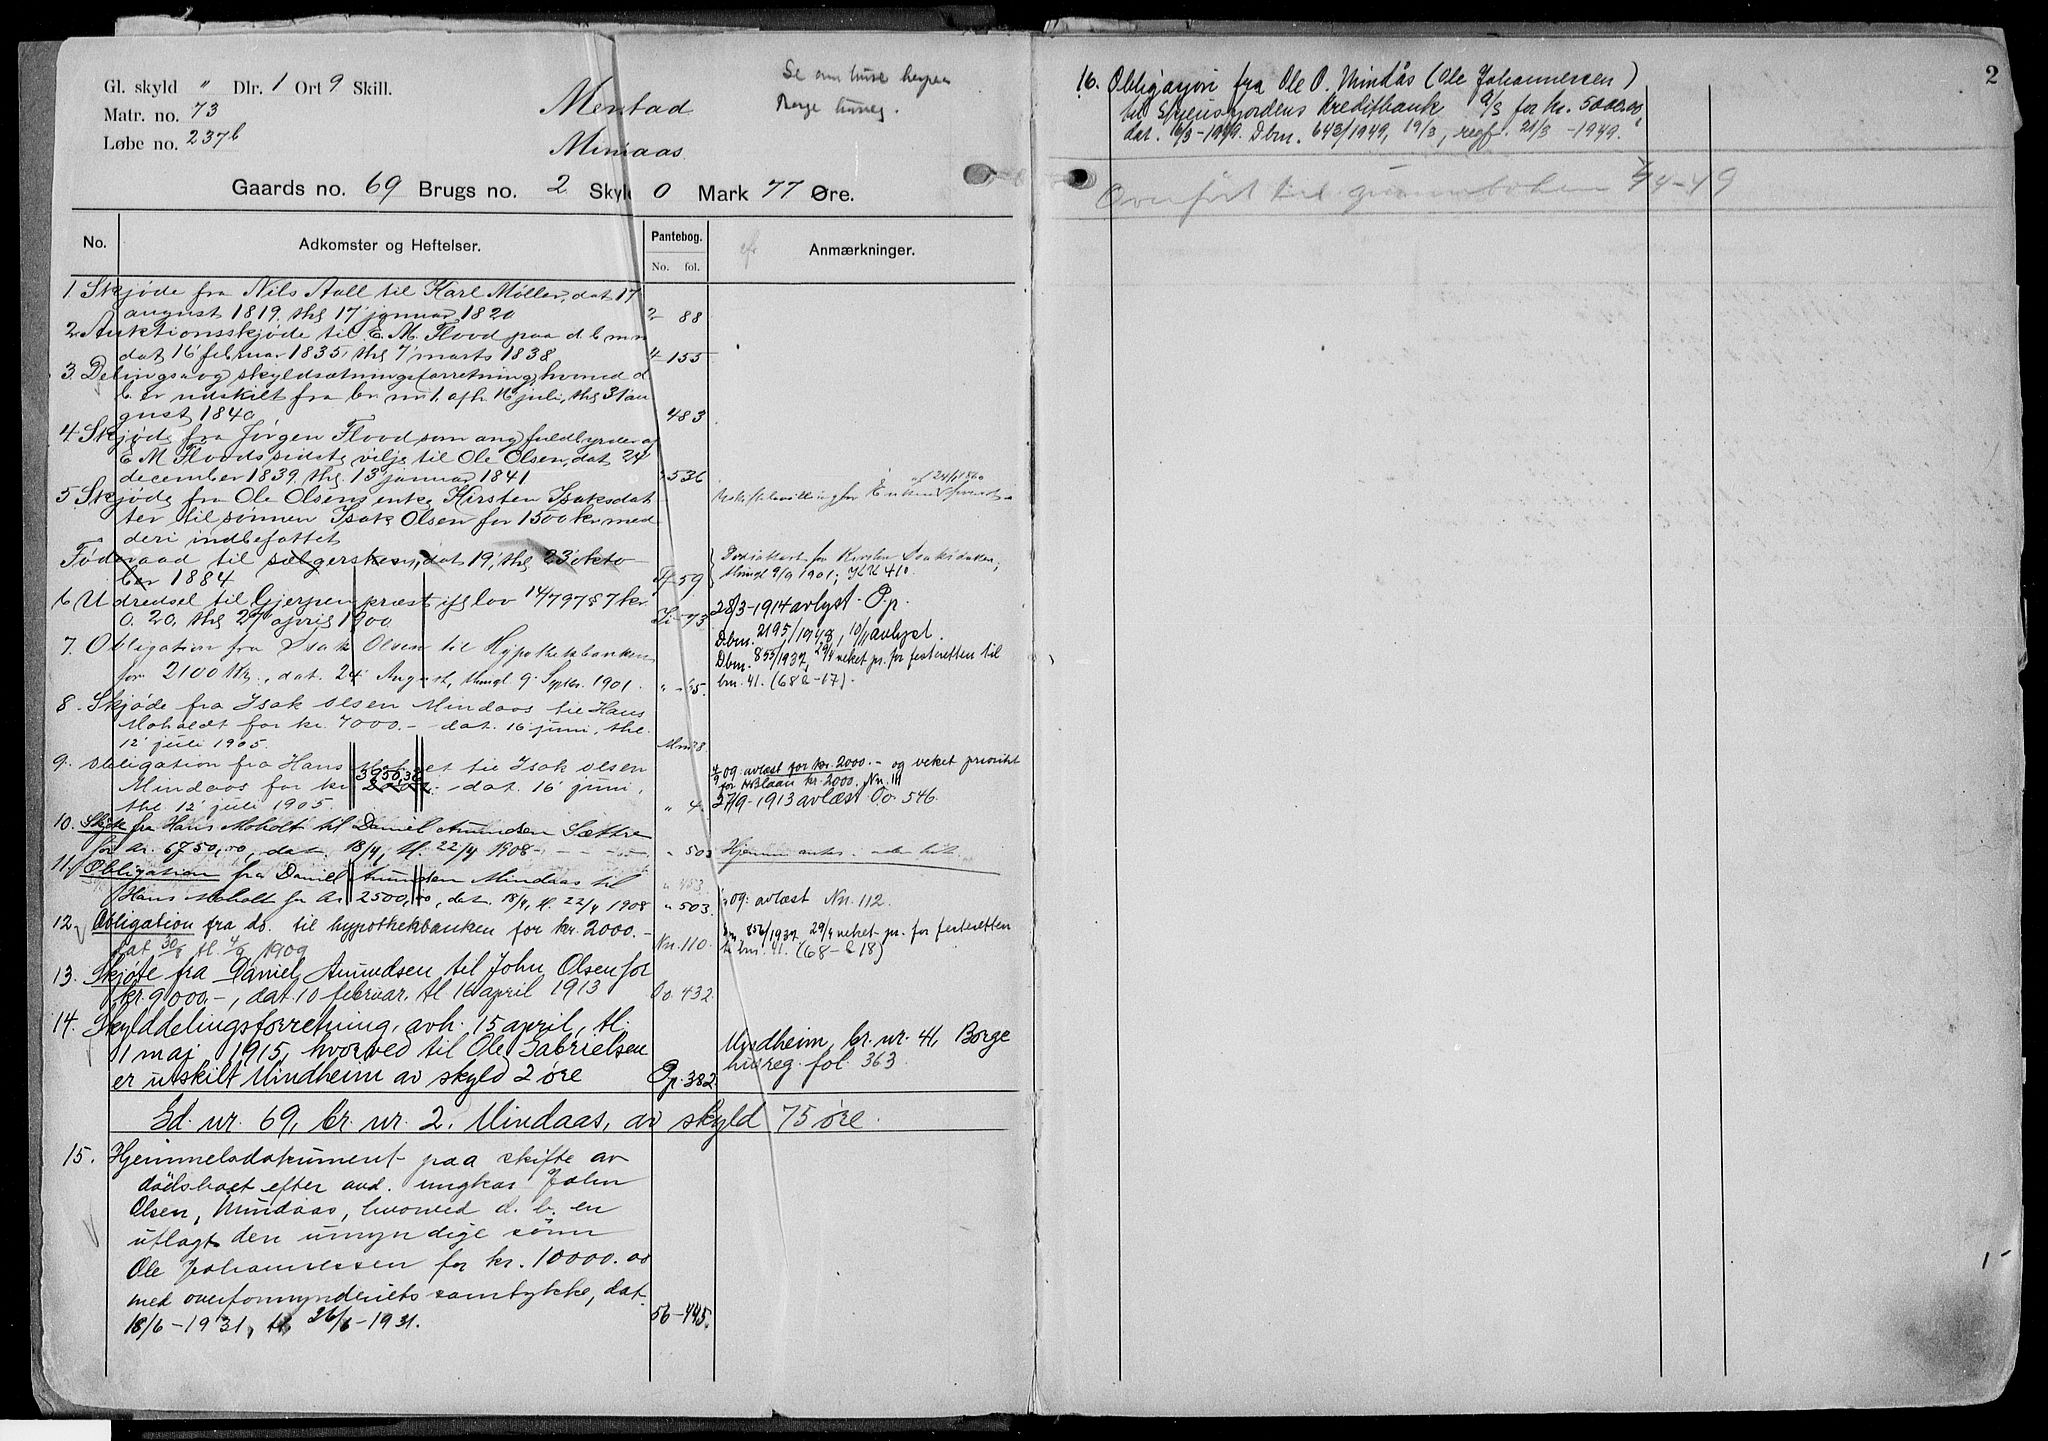 Gl. skyld " Dlr. 1 Ort 9 Skill.
Matr. no. 73
Løbe no. 237b
Menstad
Mindaas
Se om huse herpaa
Borge husreg.
Gaards no. 69 Brugs no. 2 Skyld 0 Mark 77 Øre.
No. Adkomster og Heftelser. Pantebog. No. fol. Anmærkninger.
1 Skjøde fra Nils Aall til Karl Møller, dat 17
august 1819. thl 17 januar 1820 2 88
2 Auktionsskjøde til E. M. Flood paa d b m m
dat 16 februar 1835, thl 7 marts 1838 4 155
3. Delings og skyldsætningsforretning hvorved d
b. er udskilt fra br. nr 1. afh. 16 juli, thl 31 au
gust 1840 483
4 Skjøde fra Jørgen Flood som ang fuldbyrder af
E M Floods sidste vilje til Ole Olsen, dat 24
december 1839. thl 13 januar 1841 536
5 Skjøde fra Ole Olsens enke Kirsten Isaksdat
ter til sønnen Isak Olsen for 1500 kr med
deri indbefattet
Føderaad til sælgersken, dat 19, thl 23 okto
ber 1884 Ff 59
af 24/1 1860
Dødsattest for Kirsten Isaksdatter,
thingl 9/9 1901; KK 410
6 Udredsel til Gjerpen præst ifg lov 14/7 97 § 7 kr
0. 20, thl 27 april 1900 73
28/3-1914 avlyst. Op.
7. Obligation fra Isak Olsen til Hypothekbanken
for 2100 Kr., dat. 24 August, thingl 9. Septbr. 1901. " 65.
Dbnr. 2195/1948, 10/11 avlyst.
Dbnr. 855/1937, 29/4 veket pr. for festeretten til
bnr. 41. (68 b-17).
8. Skjøde fra Isak olsen Mindaas til Hans
Moholdt for kr. 7000.- dat. 16 juni, thl.
12 juli 1905.
9. obligation fra Hans Moholdt til Isak olsen
Mindaas for kr 3950,32 dat. 16 juni,
thl 12 juli 1905. " 4.
4/9 09: avlæst for kr. 2000.- og veket prioritet
for HBlaan kr. 2000. Nn. 111
27/9-1913 avlæst Oo. 546.
10. Skjøte fra Hans Moholt til Daniel Amundsen Sættre
for kr. 6750,00, dat. 18/4, tl. 22/4 1908 " 503
11. Obligation fra Daniel Amundsen Mindaas til
Hans Moholt for kr 2500,00, dat. 18/4, tl. 22/4 1908 " 503.
09: avlæst Nn. 112.
12. Obligation fra ds. til hypothekbanken for kr. 2000.-
dat 30/8 tl. 4/9 1909 Nn. 110.
856/1937 29/4 veket pr. for festeretten
til bnr. 41. (68-b 18)
13. Skjøte fra Daniel Amundsen til John Olsen for
kr. 9000.-, dat. 10 februar, tl 16 april 1913 Oo. 432
14. Skylddelingsforretning, avh. 15 april, tl.
1 maj 1915, hvorved til Ole Gabrielsen
er utskilt Mindheim av skyld 2 øre Op. 382
Mindheim, br. nr. 41, Borge
husreg. fol. 363.
Gd. nr. 69, br. nr. 2. Mindaas, av skyld 75 øre.
15. Hjemmelsdokument paa skifte av
dødsboet efter avd. ungkar John
Olsen, Mindaas, hvorved d. b. er
utlagt den umyndige sønn
Ole Johannessen for kr. 10000.00
med overformynderiets samtykke, dat.
18/6-1931, tl, 26/6-1931. 56-445.
2
16. Obligasjon fra Ole O. Mindås (Ole Johannessen)
til Skiensfjordens Kreditbank A/S for kr. 5000.00
dat. 16/3-1949. Dbnr. 643/1949, 19/3, regf. 21/3-1949.
Overført til grunnboken 7/4-49